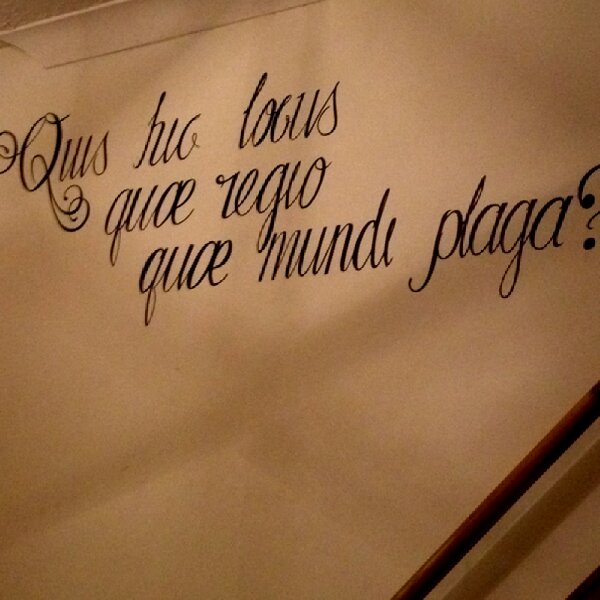 Quis hic locus
quæ regio
quæ mundi plaga?